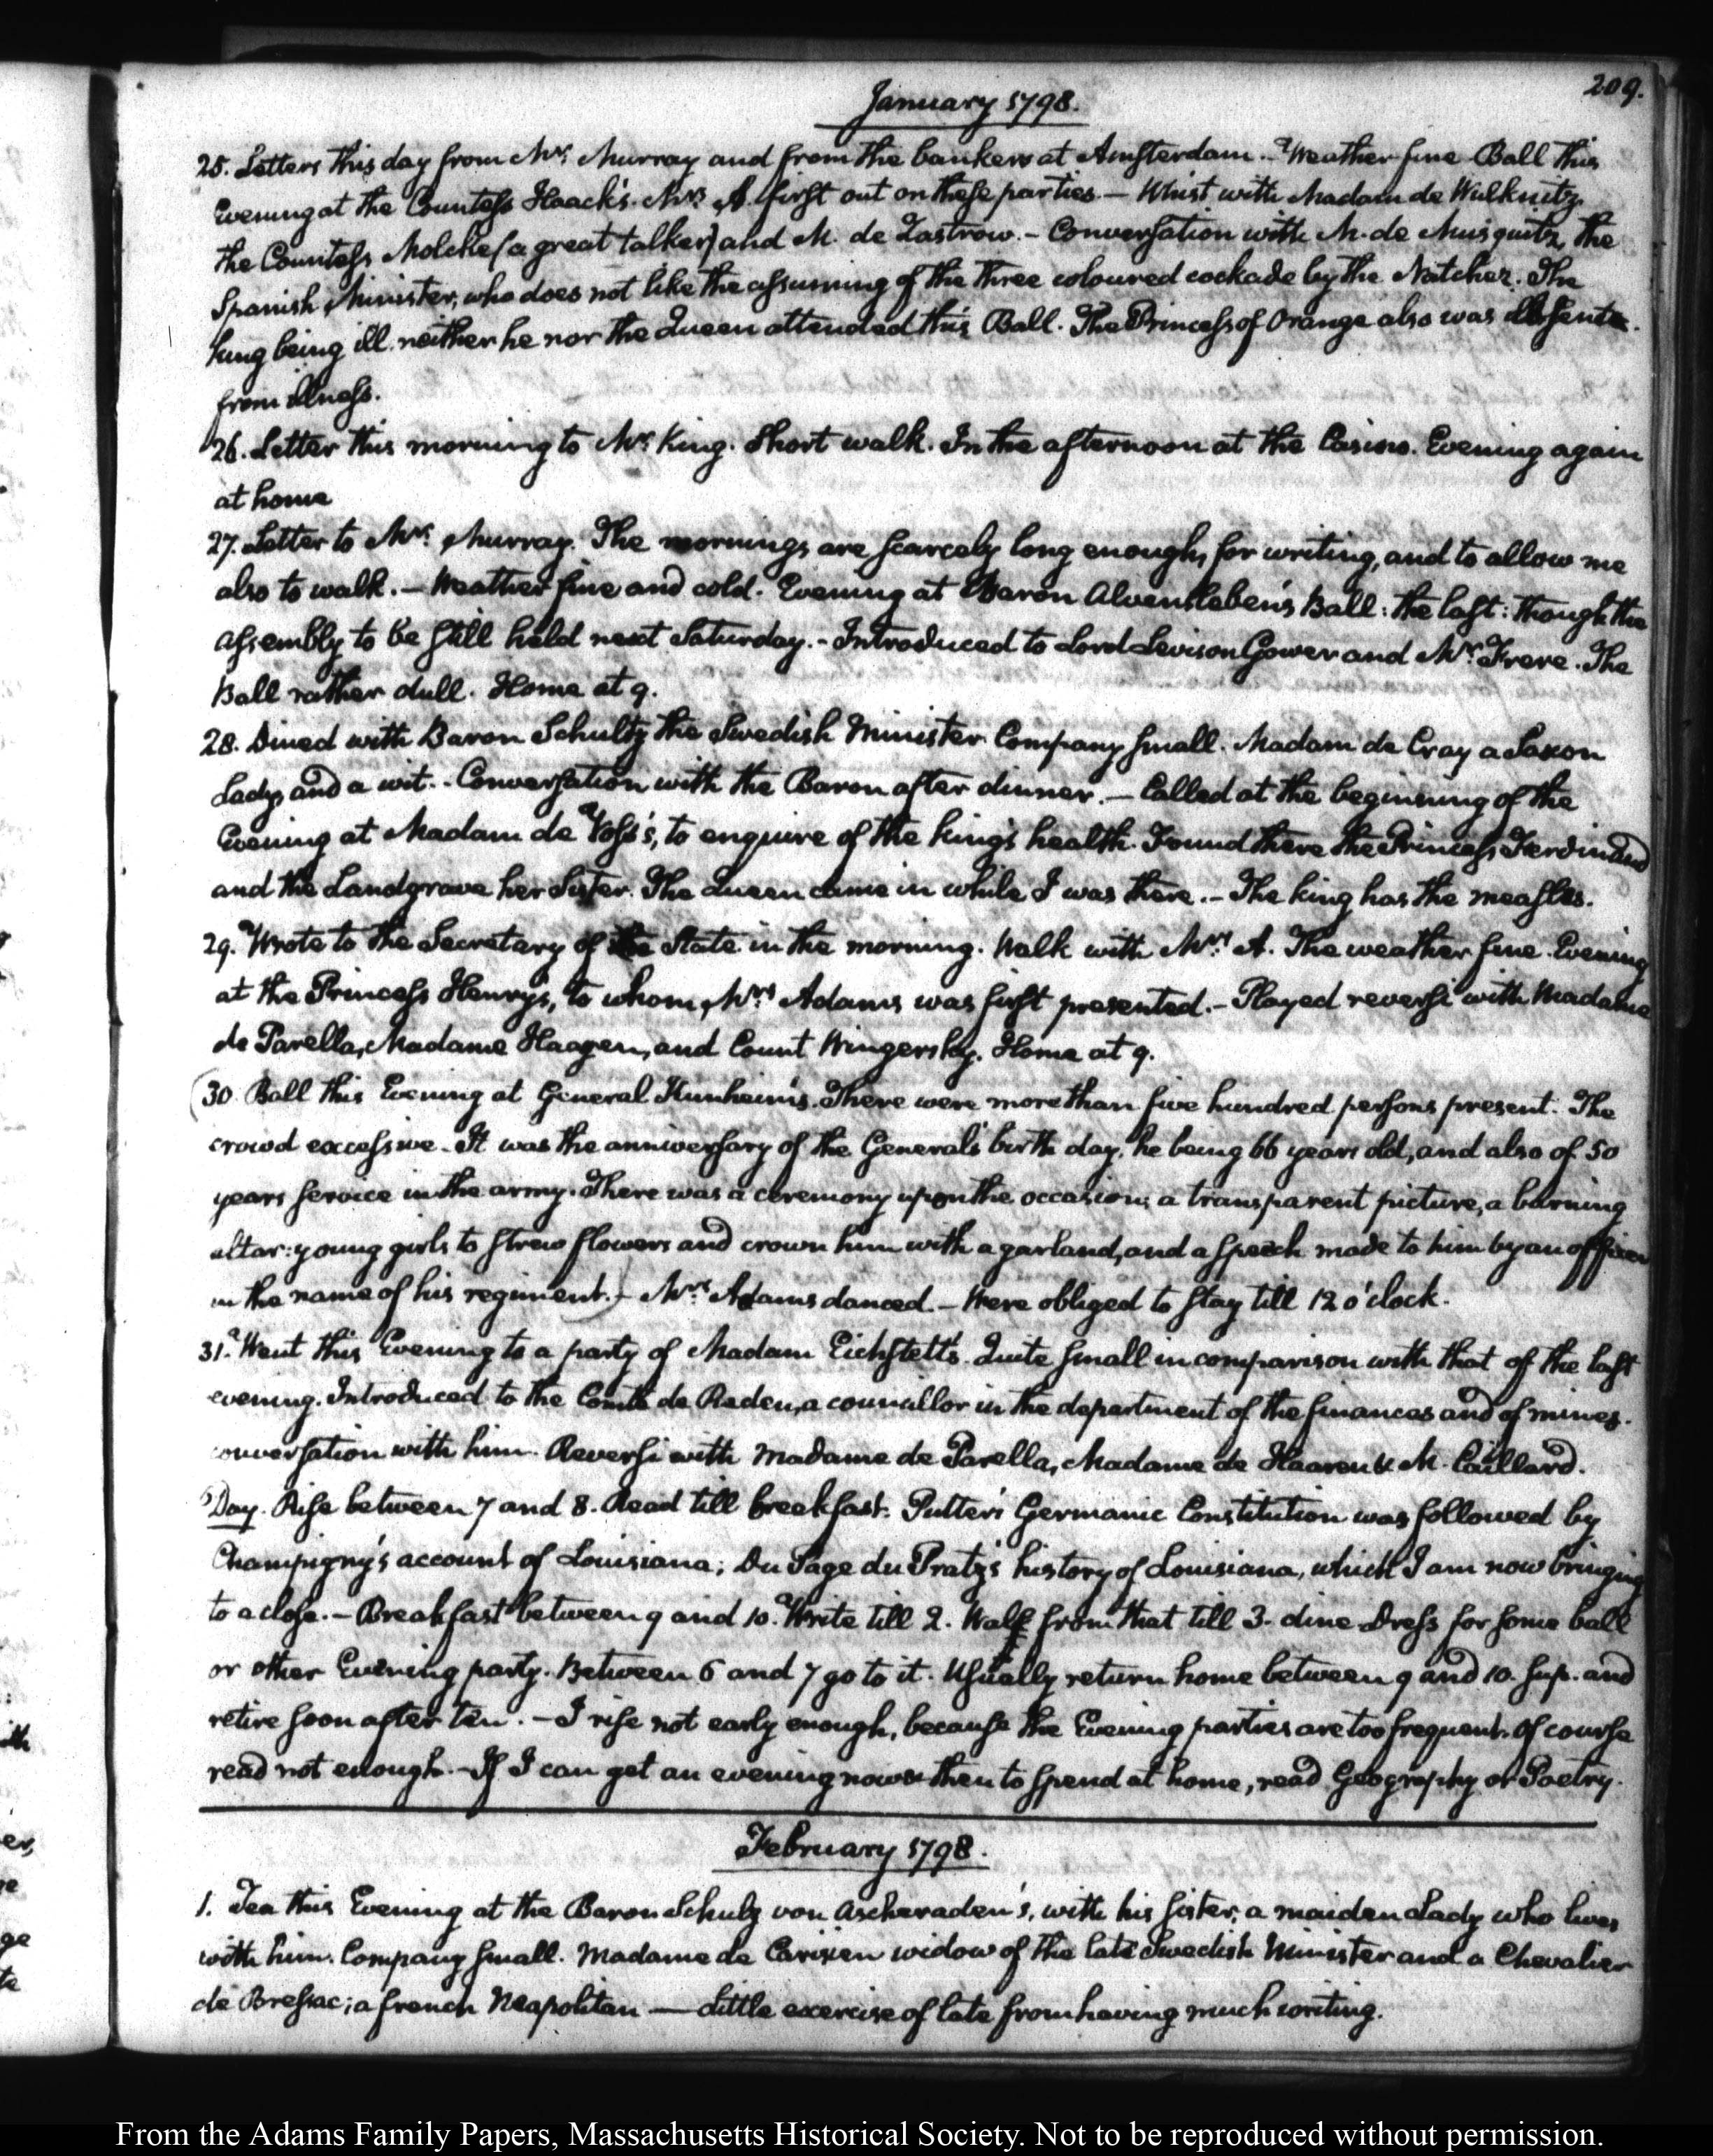 209.
January 1798.
25. Letters this day from Mr. Murray and from the bankers at Amsterdam.. Weather fine Ball this
Evening at the Countess Haack's. Mrs. A. first out on these parties. — Whist with Madam de Wulknitz
the Countess Molcke (a great talker) and M. de Zastrow. - Conversation with M. de Musquitz, the
Spanish Minister, who does not like the assuming of the three coloured cockade by the Natchez. The
king being ill. neither he nor the Queen attended this Ball. The Princess of Orange also was absent
from illness.
26. Letter this morning to Mr. King. Short walk. In the afternoon at the Casino. Evening again
at home
27. Letter to Mr. Murray. The mornings are scarcely long enough, for writing, and to allow me
also to walk. — Weather fine and cold. Evening at Baron Alvensleben's Ball: the last: though the
assembly to be still held next Saturday. - Introduced to Lord Levison Gower and Mr. Frere. The
Ball rather dull. Home at 9.
28. Dined with Baron Schultz the Swedish Minister. Company small. Madam de Cray a Saxon
Lady, and a wit. - Conversation with the Baron after dinner. — Called at the beginning of the
Evening at Madam de Voss's, to enquire of the king's health. Found there the Princess Ferdinand
and the Landgrave her Sister. The Queen came in while I was there. - The king has the measles.
29. Wrote to the Secretary of State in the morning. Walk with Mrs. A. The weather fine. Evening
at the Princess Henry's, to whom, Mrs. Adams was first presented. - Played reversi with Madame
de Parella, Madame Haagen, and Count Wingersky. Home at 9.
(30 Ball this Evening at General Kunheim's. There were more than five hundred persons present. The
crowd excessive - It was the anniversary of the General's birth day, he being 66 years old, and also of 50
years service in the army. There was a ceremony upon the occasion; a transparent picture, a burning
altar: young girls to strew flowers and crown him with a garland, and a speech made to him by an officer
in the name of his regiment.) - Mrs. Adams danced. - Were obliged to stay till 12 o'clock.
31. Went this Evening to a party of Madam Eichstett's. Quite small in comparison with that of the last
evening. Introduced to the Comte de Reden, a councillor in the department of the finances and of mines.
conversation with him. Reversi with Madame de Parella, Madame de Haaren & M. Caillard.
Day. Rise between 7 and 8. Read till breakfast. Putter's Germanic Constitution was followed by
Champigny's account of Louisiana; Du Page du Pratz's history of Louisiana, which I am now bringing
to a close. — Breakfast between 9 and 10. Write till 2. Walk from that till 3. dine Dress for some ball
or other Evening party. Between 6 and 7 go to it. Usually return home between 9 and 10. sup. and
retire soon after ten. — I rise not early enough, because the Evening parties are too frequent. Of course
read not enough - If I can get an evening now & then to spend at home, read Geography or Poetry.
February 1798.
1. Tea this Evening at the Baron Schulz von Ascheraden's, with his sister, a maiden Lady who lives
with him. Company small. Madame de Carisien widow of the late Swedish Minister and a Chevalier
de Bressac; a french Neapolitan — Little exercise of late from having much writing.
From the Adams Family Papers, Massachusetts Historical Society. Not to be reproduced without permission.